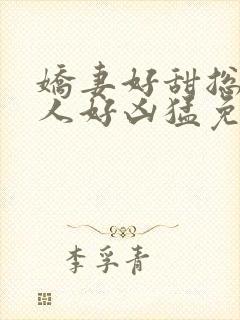 嬌妻好甜总
人好凶猛免
李孚青